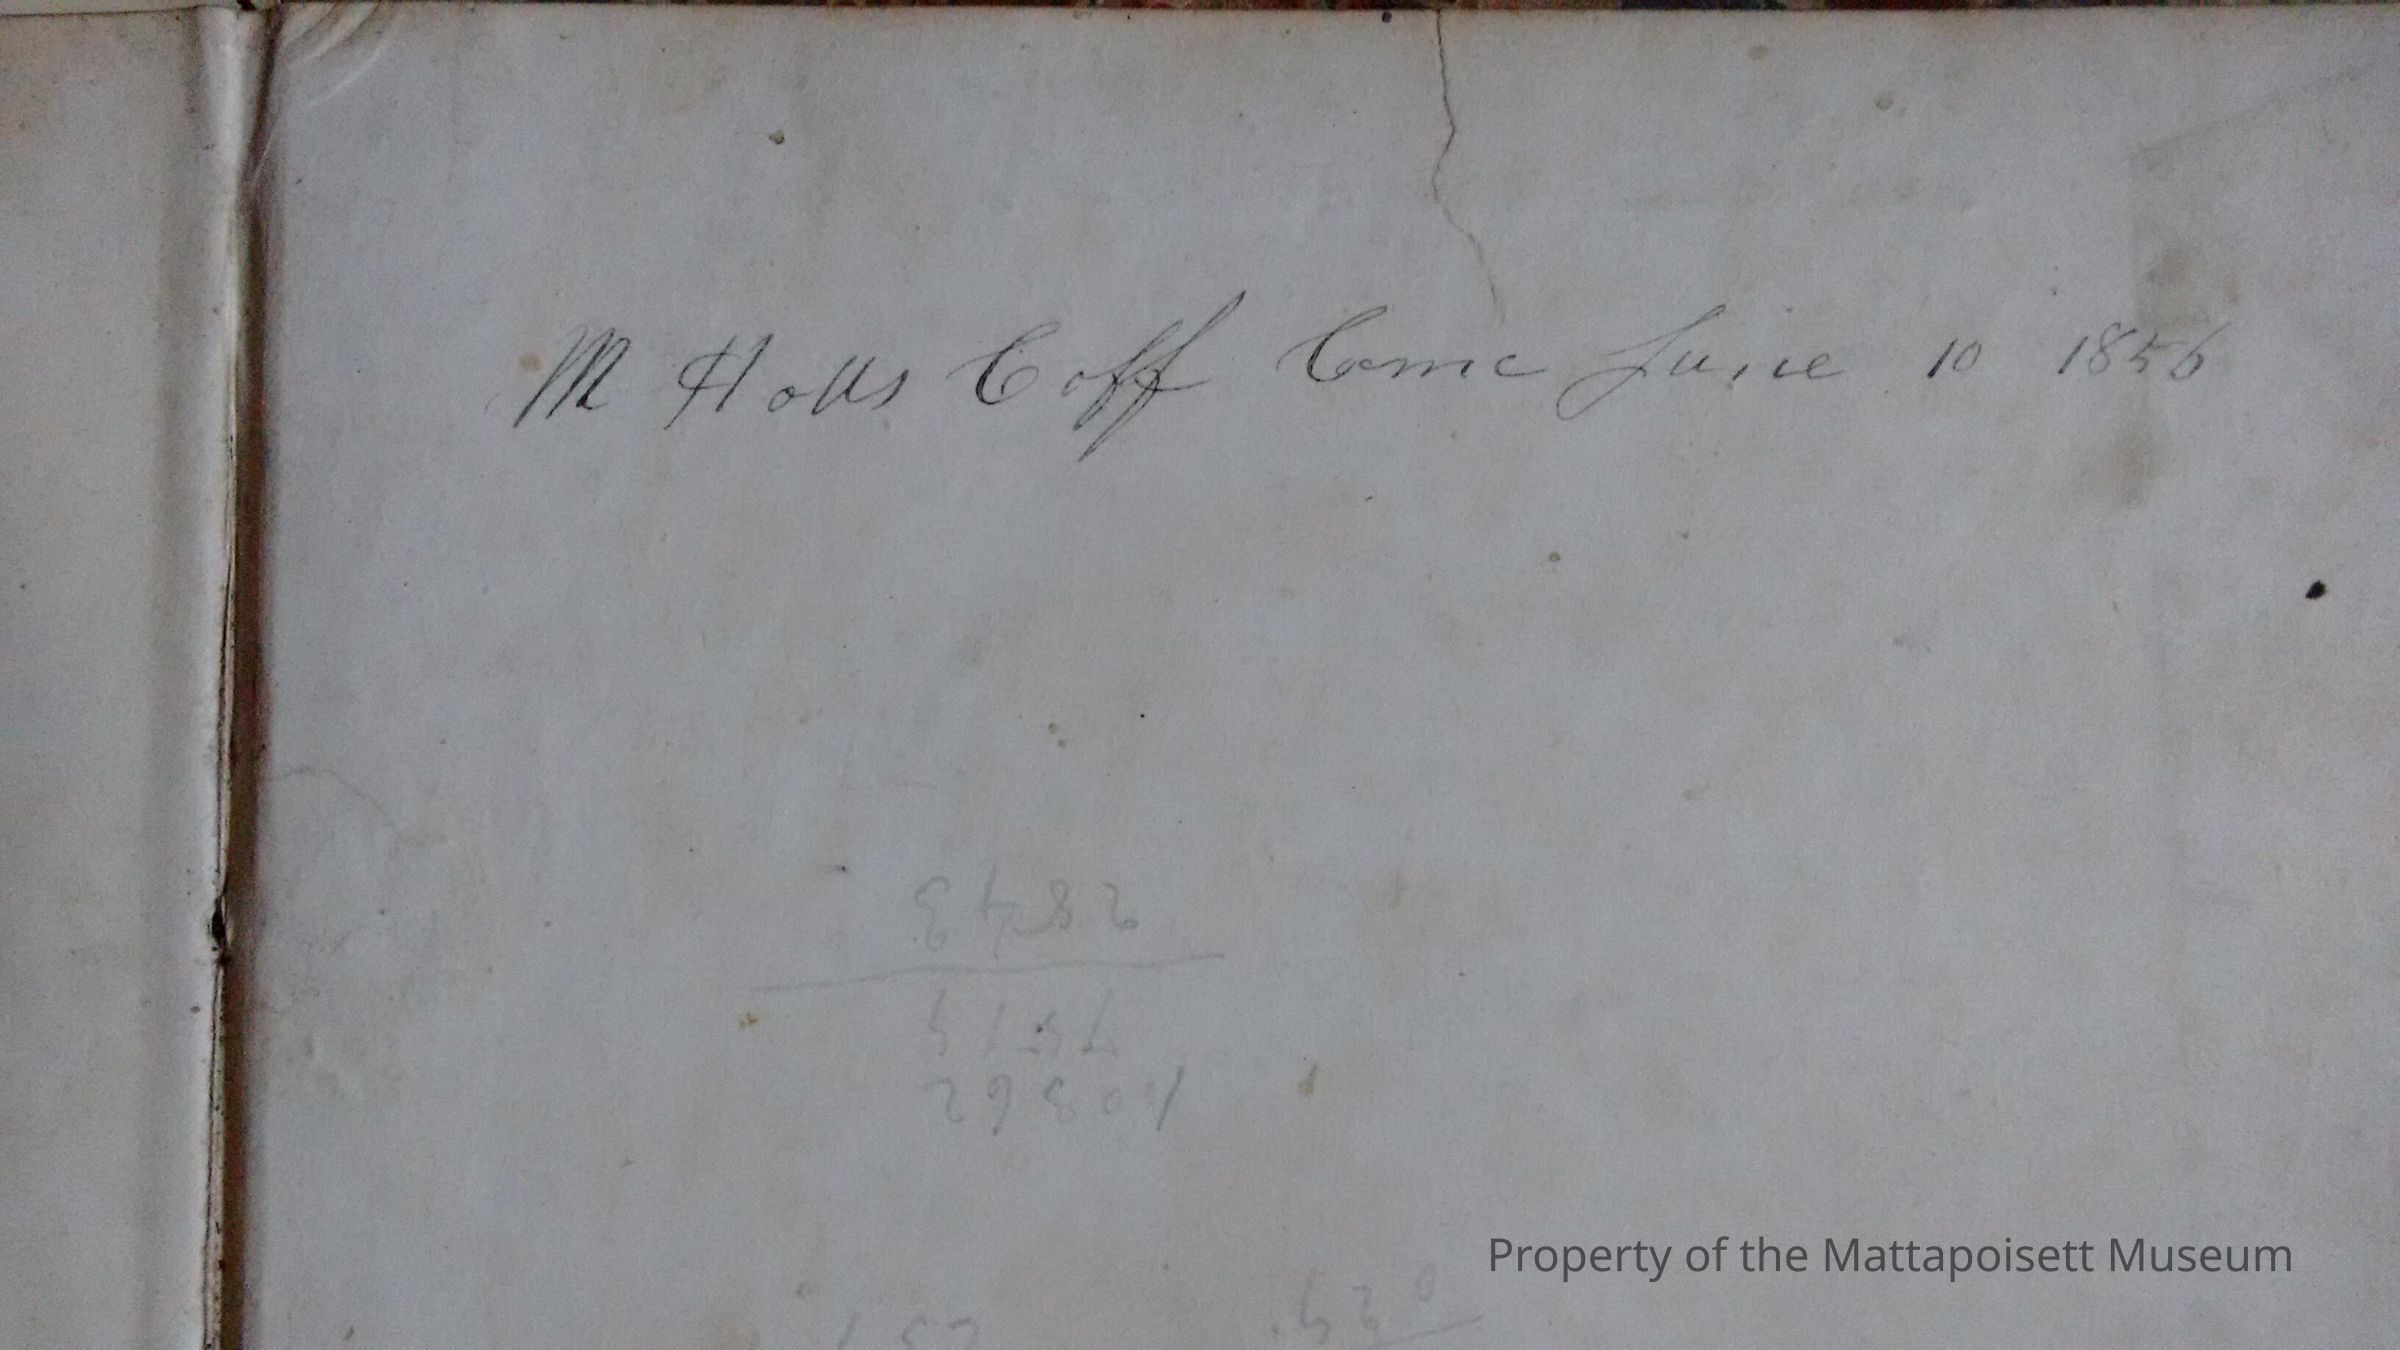 M Holls Coff Come June 10 1856
10362
7519
2843
Property of the Mattapoisett Museum